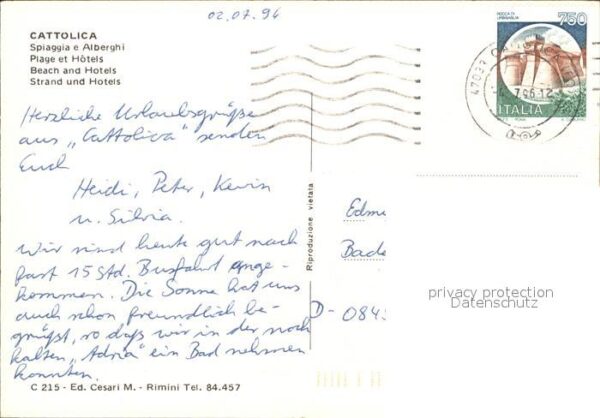 02.07.96
CATTOLICA
Spiaggia e Alberghi
Plage et Hôtels
Beach and Hotels
Strand und Hotels
ROCCA DI
URBISAGLIA
750
ITALIA
47033
7.96.12
Herzliche Urlaubsgrüße
aus „Cattolica" senden
Euch
Heidi, Peter, Kevin
u. Silvia.
Wir sind heute gut nach
fast 15 Std. Busfahrt ange-
kommen. Die Sonne hat uns
auch schon freundlich be-
grüßt, so daß wir in der noch
kalten „Adria" ein Bad nehmen
konnten.
Riproduzione vietata
Edm
Bade
D-084
privacy protection
Datenschutz
C 215 - Ed. Cesari M. - Rimini Tel. 84.457